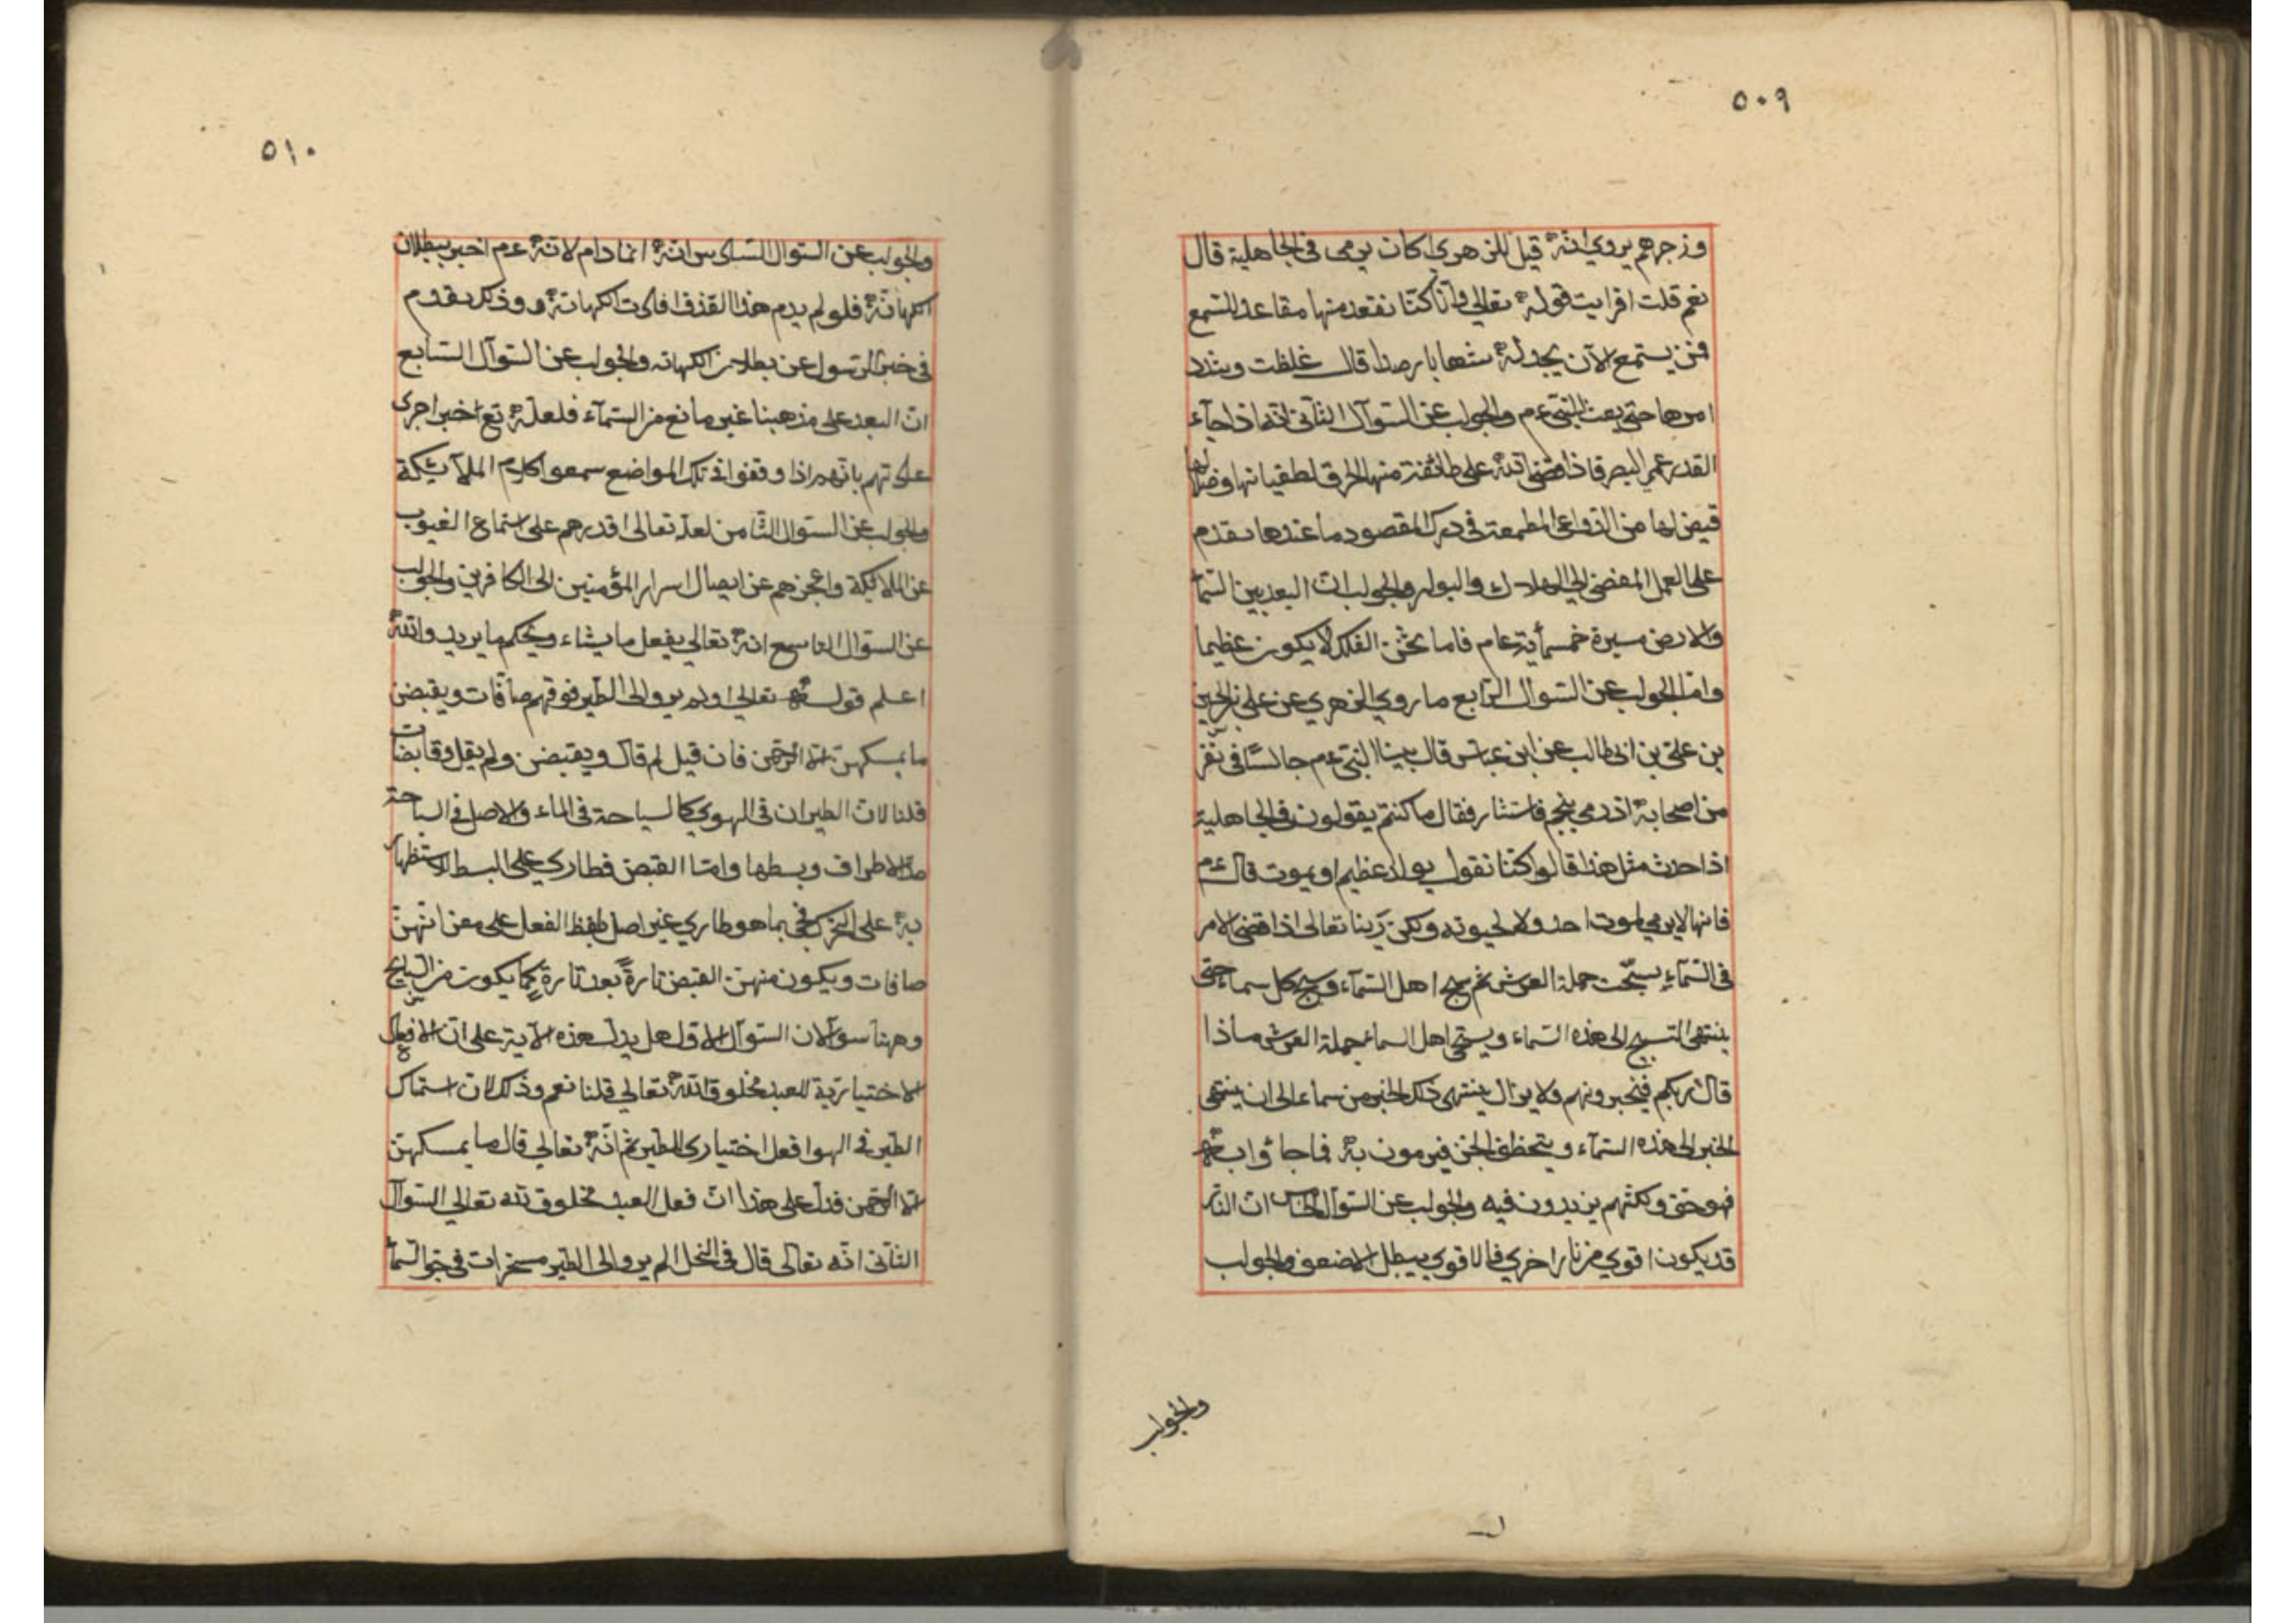 ٥٠٩
وزجرهم يروي انه قيل للزهري اكان يرمى فى الجاهلية قال
نعم قلت افرايت قوله تعالي وانا كنا نقعد منها مقاعد للسمع
فمن يستمع الآن يجد له شهابا رصدا قال غلظت وشدد
امرها حتى بعث النبي عم والجواب عن السوآل الثانى انه اذا جآء
القدر عمي البصر فاذا قضى الله على طائفة منها الحرق لطغيانها وضلالها
قيض لها من الدواعى المطمعة في درك المقصود ما عندها تقدم
على العمل المفضى الي الهلاك والبوار والجواب ان البعد بين السمآ
والارض مسيرة خمسمأية عام فاما ثخن الفلك لا يكون عظيما
واما الجواب عن السوال الرابع ما روي الزهري عن على بن الحسين
بن على بن ابى طالب عن ابن عباس قال بينا النبى عم جالسًا فى نفر
من اصحابه اذ رمي بنجم فاستنار فقال ما كنتم يقولون فى الجاهلية
اذا حدث مثل هذا قالوا كنا نقول يولد عظيم او يموت قال عم
فانها لا يرمي لموت احد ولا لحيوته ولكن ربنا تعالى اذا قضى الامر
فى السمآء يسبحت حملة العرش ثم سبح اهل السمآء وسبح كل سماء حتى
ينتهى التسبيح الى هذه السماء ويستخبر اهل السماء حملة العرش ماذا
قال ربكم فيخبرونهم ولا يزال ينتهى ذلك الخبر من سماء الى ان ينتهى
الخبر الى هذه السمآء ويتخطف الجن فيرمون به فما جاؤا به
فهو حق ولكنهم يزيدون فيه والجواب عن السوآل الخامس ان النار
قد يكون اقوي من نار اخري فالاقوي يبطل الاضعف والجواب
والجواب
٥١٠
والجواب عن السوال السادس انه انما دام لانه عم اخبر ببطلان
الكهانة فلو لم يدم هذا القذف لعادت الكهانة وذلك يقدم
فى خبر الرسول عن بطلان الكهانه والجواب عن السوآل السابع
ان البعد على مذهبنا غير مانع من السمآء فلعله تع اخبر اجرى
عادتهم بانهم اذا وقفوا فى تلك المواضع سمعوا كلام الملآئيكة
والجواب عن السوال الثامن لعله تعالى اقدرهم على استماع الغيوب
عن الملائيكة واعجزهم عن ايصال اسرار المؤمنين الى الكافرين والجواب
عن السوال التاسع انه تعالي يفعل ما يشاء ويحكم ما يريد والله
اعلم قوله تعالي اولم يروا الى الطير فوقهم صآفات ويقبضن
ما يمسكهن الا الرحمن فان قيل لم قال ويقبضن ولم يقل وقابضات
قلنا لان الطيران فى الهوي كالسياحة فى الماء والاصل فى السباحة
مد الاطراف وبسطها واما القبض فطاري على البسط للاستظهار
به على التحرك فجئ بما هو طاري غير اصل بلفظ الفعل على معنى انهن
صافات ويكون منهن القبض تارةً بعد تارةٍ كما يكون من السابح
وههنا سوآلان السوآل الاول هل يدل هذه الآية على ان الافعال
الاختيارية للعبد مخلوقة لله تعالي قلنا نعم وذلك لان استمساك
الطير فى الهوا فعل اختيارى للطير ثم انه تعالي قال ما يمسكهن
الا الرحمن فدل على هذا ان فعل العبد مخلوق لله تعالي السوآل
الثآنى انه تعالى قال فى النحل الم يروا الى الطير مسخرات فى جو السمآ